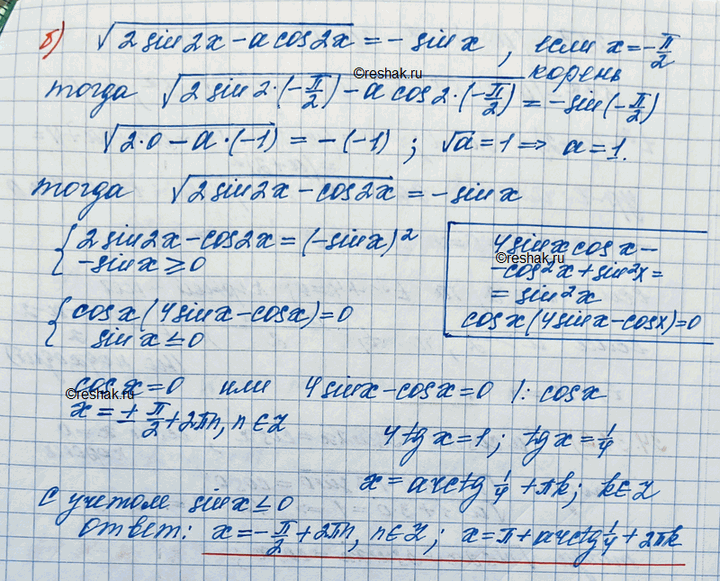 б) √(2 sin 2x − a cos 2x) = − sin x , если x = −π/2
корень
©reshak.ru
тогда √(2 sin 2·(−π/2) − a cos 2·(−π/2)) = −sin(−π/2)
√(2·0 − a·(−1)) = −(−1) ; √a = 1 ⇒ a = 1.
тогда √(2 sin 2x − cos 2x) = − sin x
{ 2 sin 2x − cos 2x = (−sin x)²
−sin x ≥ 0
4 sin x cos x −
©reshak.ru
− cos² x + sin² x =
= sin² x
cos x (4 sin x − cos x) = 0
{ cos x (4 sin x − cos x) = 0
sin x ≤ 0
cos x = 0 или 4 sin x − cos x = 0 /: cos x
©reshak.ru
x = ± π/2 + 2πn, n ∈ Z
4 tg x = 1 ; tg x = 1/4
x = arctg 1/4 + πk ; k ∈ Z
с учетом sin x ≤ 0
ответ: x = −π/2 + 2πn, n ∈ Z ; x = π + arctg 1/4 + 2πk